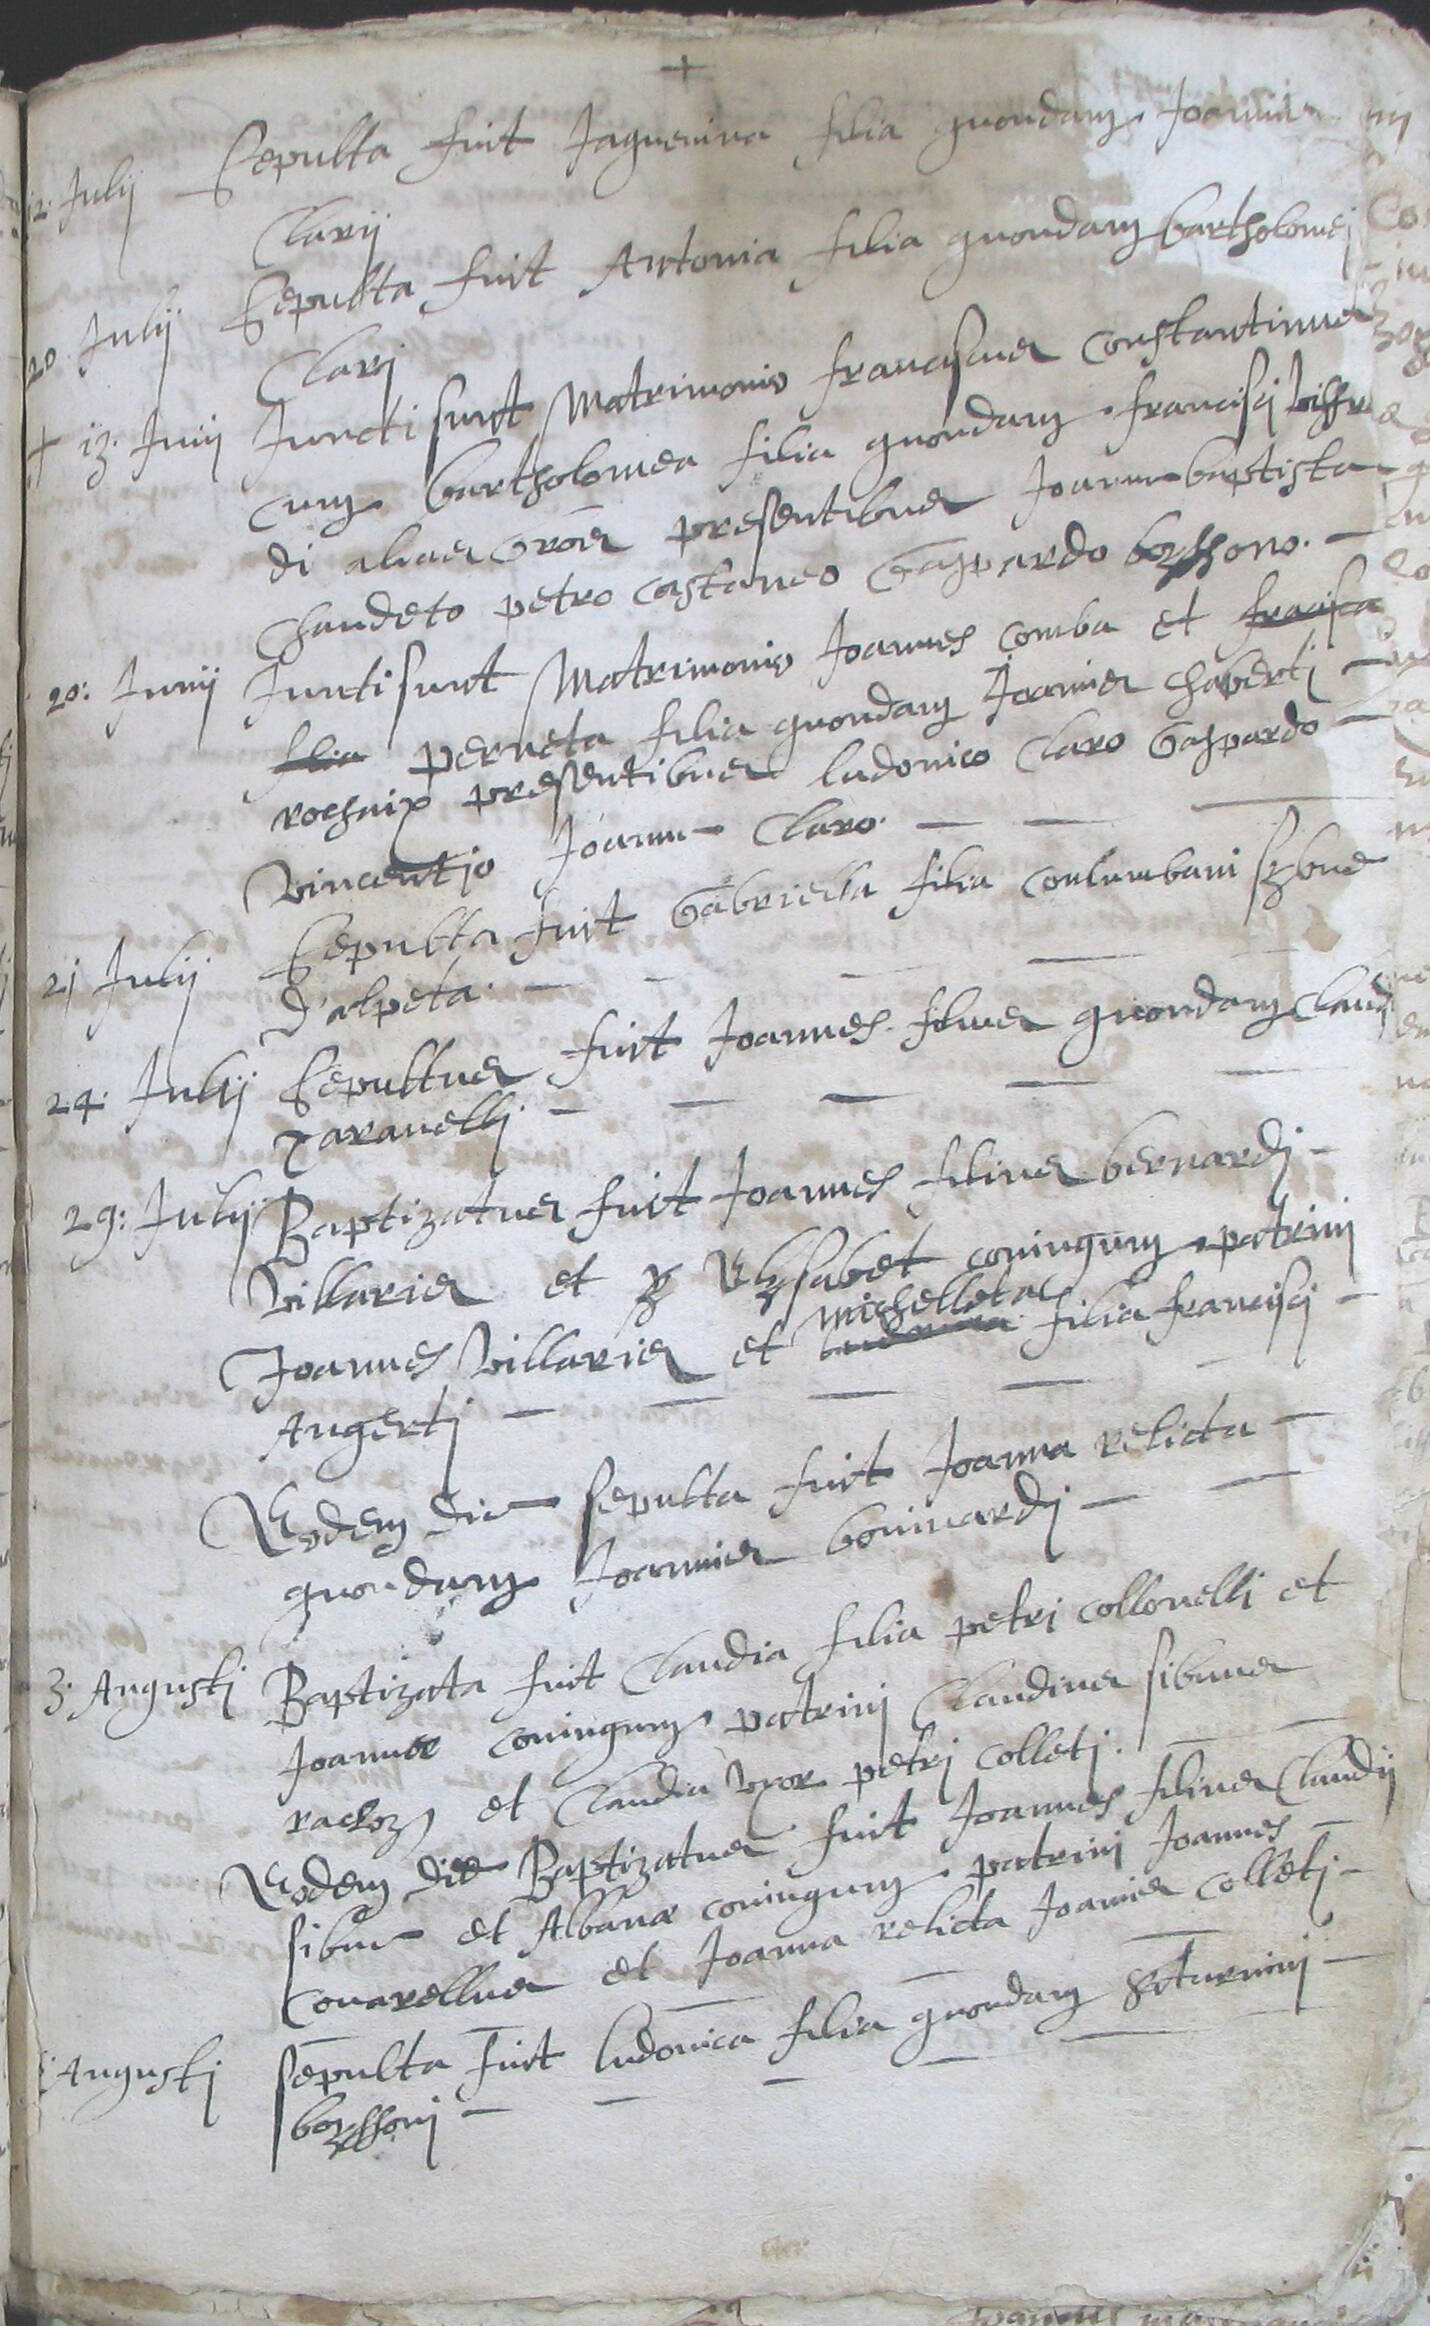 +
12. Julij Sepulta fuit Jaquemina filia quondam Joannis
Clarij
20 Julij Sepulta fuit Antonia filia quondam bartholomej
Clarj
+ 13. Junij Juncti sunt Matrimonio franciscus Constantinus
cum bartholomea filia quondam francisci
di alias presentibus Joanne baptista
chaudeto petro castaneo Gaspardo borssono. —
20: Junij Juncti sunt Matrimonio Joannes comba et francisca
filia perneta filia quondam Joannis chaberti —
rochaix presentibus ludovico Claro Gaspardo —
vincentio Joanne Claro. — — —
21 Julij Sepulta fuit Gabriella filia coulumbani
D'alpeta. — — — — —
24. Julij Sepultus fuit Joannes filius quondam Claudj
xaranellj — — — — —
29: Julij Baptizatus fuit Joannes filius bernardj —
Villaris et Elysabet coniugum patrini
Michelleta
Joannes Villaris et ludovica filia francisci —
Augertj — — — — —
Eodem die sepulta fuit Joanna relicta —
quondam Joannis boninardj — —
3. Augustj Baptizata fuit Claudia filia petri collonelli et
Joannæ coniugum patrinj Claudius sibuus
racloz et Claudia uxor petrj colletj. — —
Eodem die Baptizatus fuit Joannes filius Claudij
sibue et Albanæ coniugum patrinj Joannes —
Couarellus et Joanna relicta Joannis colletj —
Augustj sepulta fuit ludovica filia quondam Saturninj —
borssonj — — — —